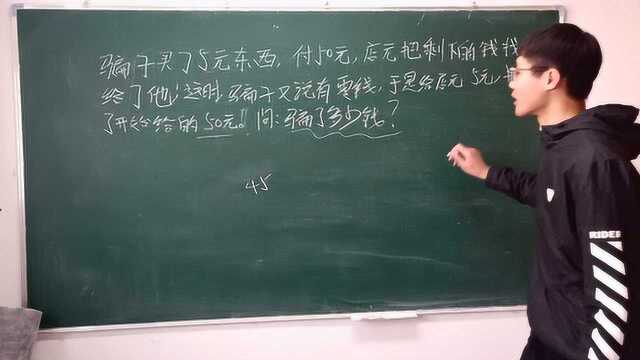 骗子买了5元东西,付50元,店元把剩下的钱找
给了他!这时骗子又说有零钱,于是给店元5元,
了开始给的50元!问:骗了多少钱?
45
RIDER